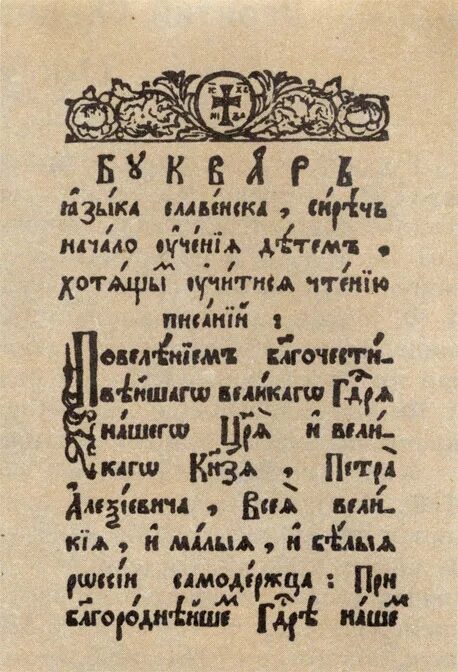 І҃С Х҃С
НИ КА
БꙊКВА́РЬ
ꙗ҆зы́ка славе́нска, си́рѣчь
нача́ло ᲂу҆че́нїѧ дѣ́темъ,
хотѧ́щыⷨ ᲂу҆чи́тисѧ чте́нїю
писа́нїй:
Повелѣ́нїемъ бл҃гочести-
вѣ́йшагѡ вели́кагѡ Гдⷭ҇рѧ
на́шегѡ Цр҃ѧ̀ и҆ вели-
кагѡ Кн҃зѧ, Петра̀
Алеѯі́евича, Всеѧ̀ вели́-
кїѧ, и҆ ма́лыѧ, и҆ бѣ́лыѧ
рѡссі́и самоде́ржца: При
бл҃горо́днѣйшеⷨ Гдⷭ҇рѣ на́шеⷨ